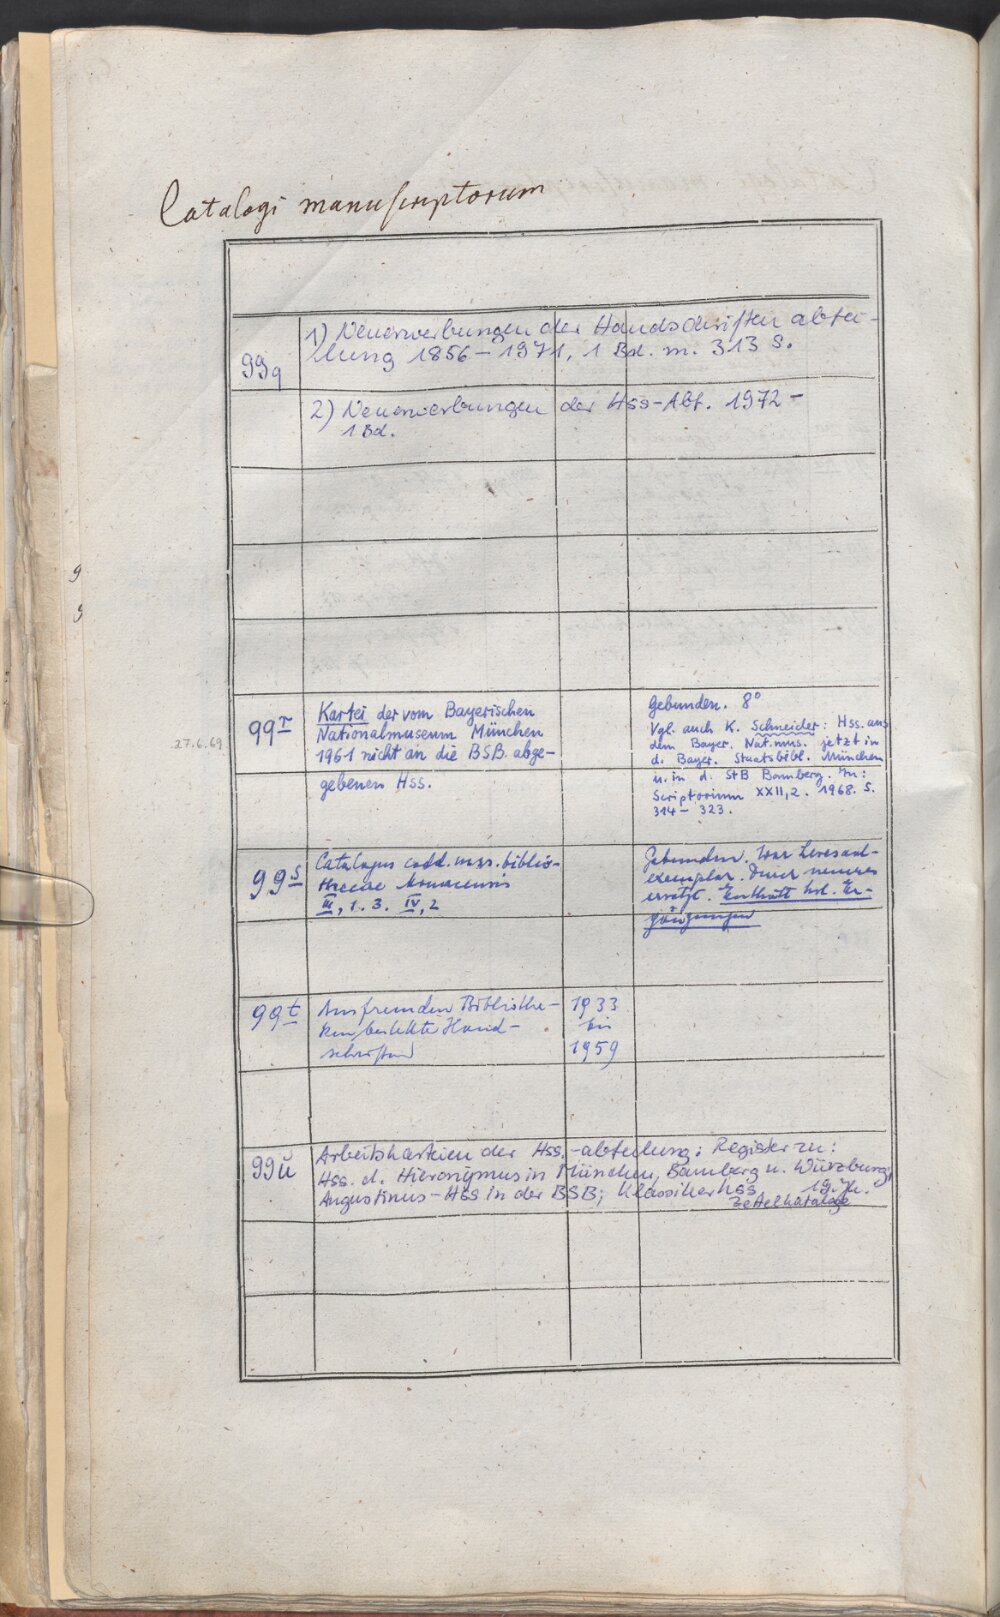 Catalogi manuscriptorum
99q
1) Neuerwerbungen der Handschriftenabtei-
lung 1856 – 1971, 1 Bd. m. 313 S.
2) Neuerwerbungen der Hss-Abt. 1972 –
1 Bd.
27.6.69
99r
Kartei der vom Bayerischen
Nationalmuseum München
1961 nicht an die BSB abge-
gebenen Hss.
Gebunden. 8°
Vgl. auch K. Schneider: Hss. aus
dem Bayer. Nat.mus. jetzt in
d. Bayer. Staatsbibl. München
u. in d. StB Bamberg. In:
Scriptorium XXII,2. 1968. S.
314 – 323.
99s
Catalogus codd. mss. biblio-
thecae Monacensis
III, 1. 3. IV, 2
Gebunden. War Lesesaal-
exemplar. Durch neueres
ersetzt. Enthält hsl. Er-
gänzungen
99t
Aus fremden Bibliothe-
ken bestellte Hand-
schriften
1933
bis
1959
99u
Arbeitskarteien der Hss.-abteilung: Register zu:
Hss. d. Hieronymus in München, Bamberg u. Würzburg;
Augustinus-Hss in der BSB; Klassikerhss 19. Jh.
Zettelkataloge